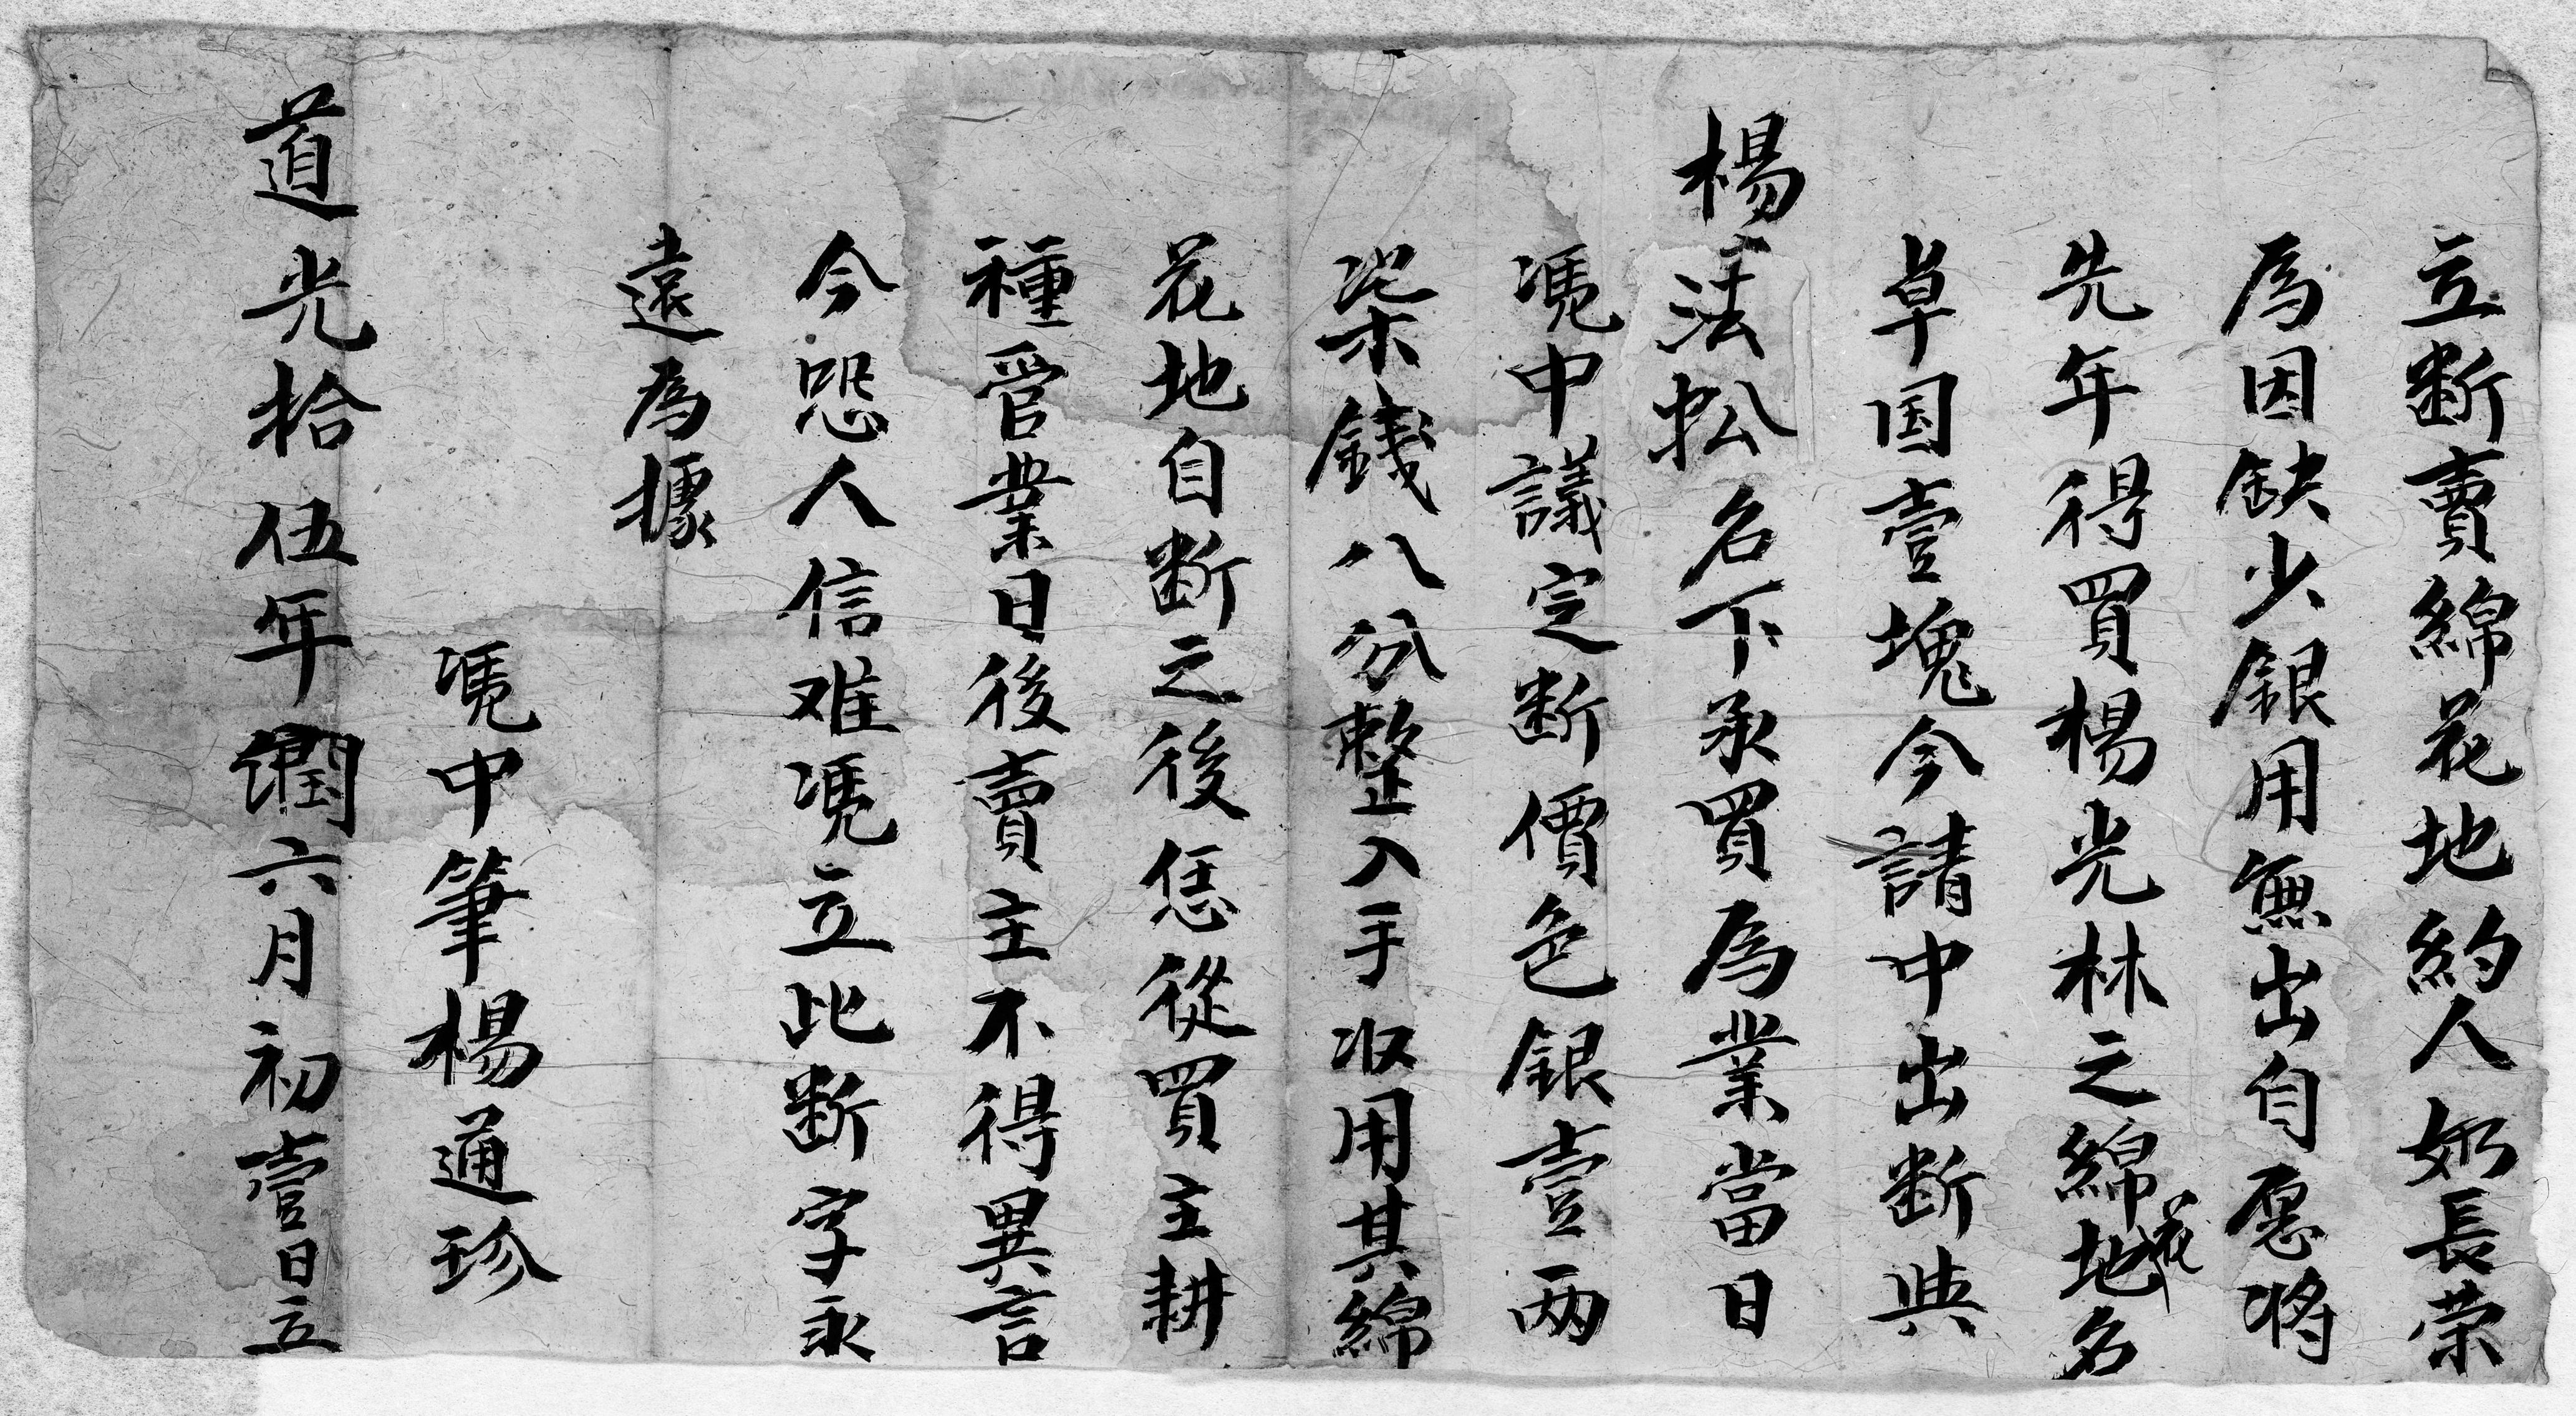 立断賣綿花地約人奶長荣
為因缺少銀用無出自愿将
先年得買楊光林之綿花地名
阜国壹塊今請中出断與
楊法松名下承買為業當日
凴中議定断價色銀壹两
柒錢八分整入手収用其綿
花地自断之後恁從買主耕
種管業日後賣主不得異言
今恐人信难凴立此断字永
遠為據
凴中筆楊通珍
道光拾伍年潤六月初壹日立